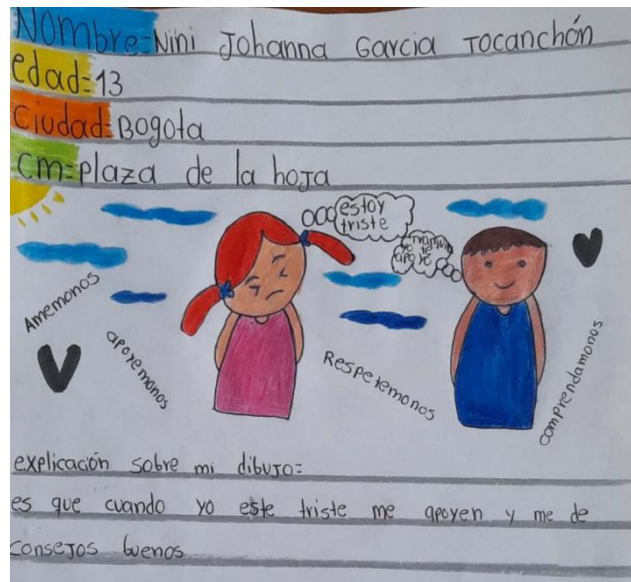 Nombre=Nini Johanna Garcia Tocanchón
edad=13
Ciudad=Bogota
cm=plaza de la hoja
estoy
triste
tranquila
yo te
apoyo
Amemonos
apoyemonos
Respetemonos
comprendamonos
explicación sobre mi dibujo=
es que cuando yo este triste me apoyen y me de
consejos buenos